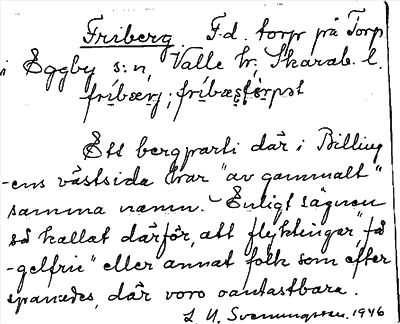 Friberg. F.d. torp på Torp
i Eggby s:n, Valle hr. Skarab. l.
Ett bergparti där i Billing
-ens västsida har "av gammalt"
samma namn. Enligt sägnen
så kallat därför, att flyktingar, "få
-gelfrie" eller annat folk som efter
spanades, där voro oantastbara.
Svenungsson. 1946